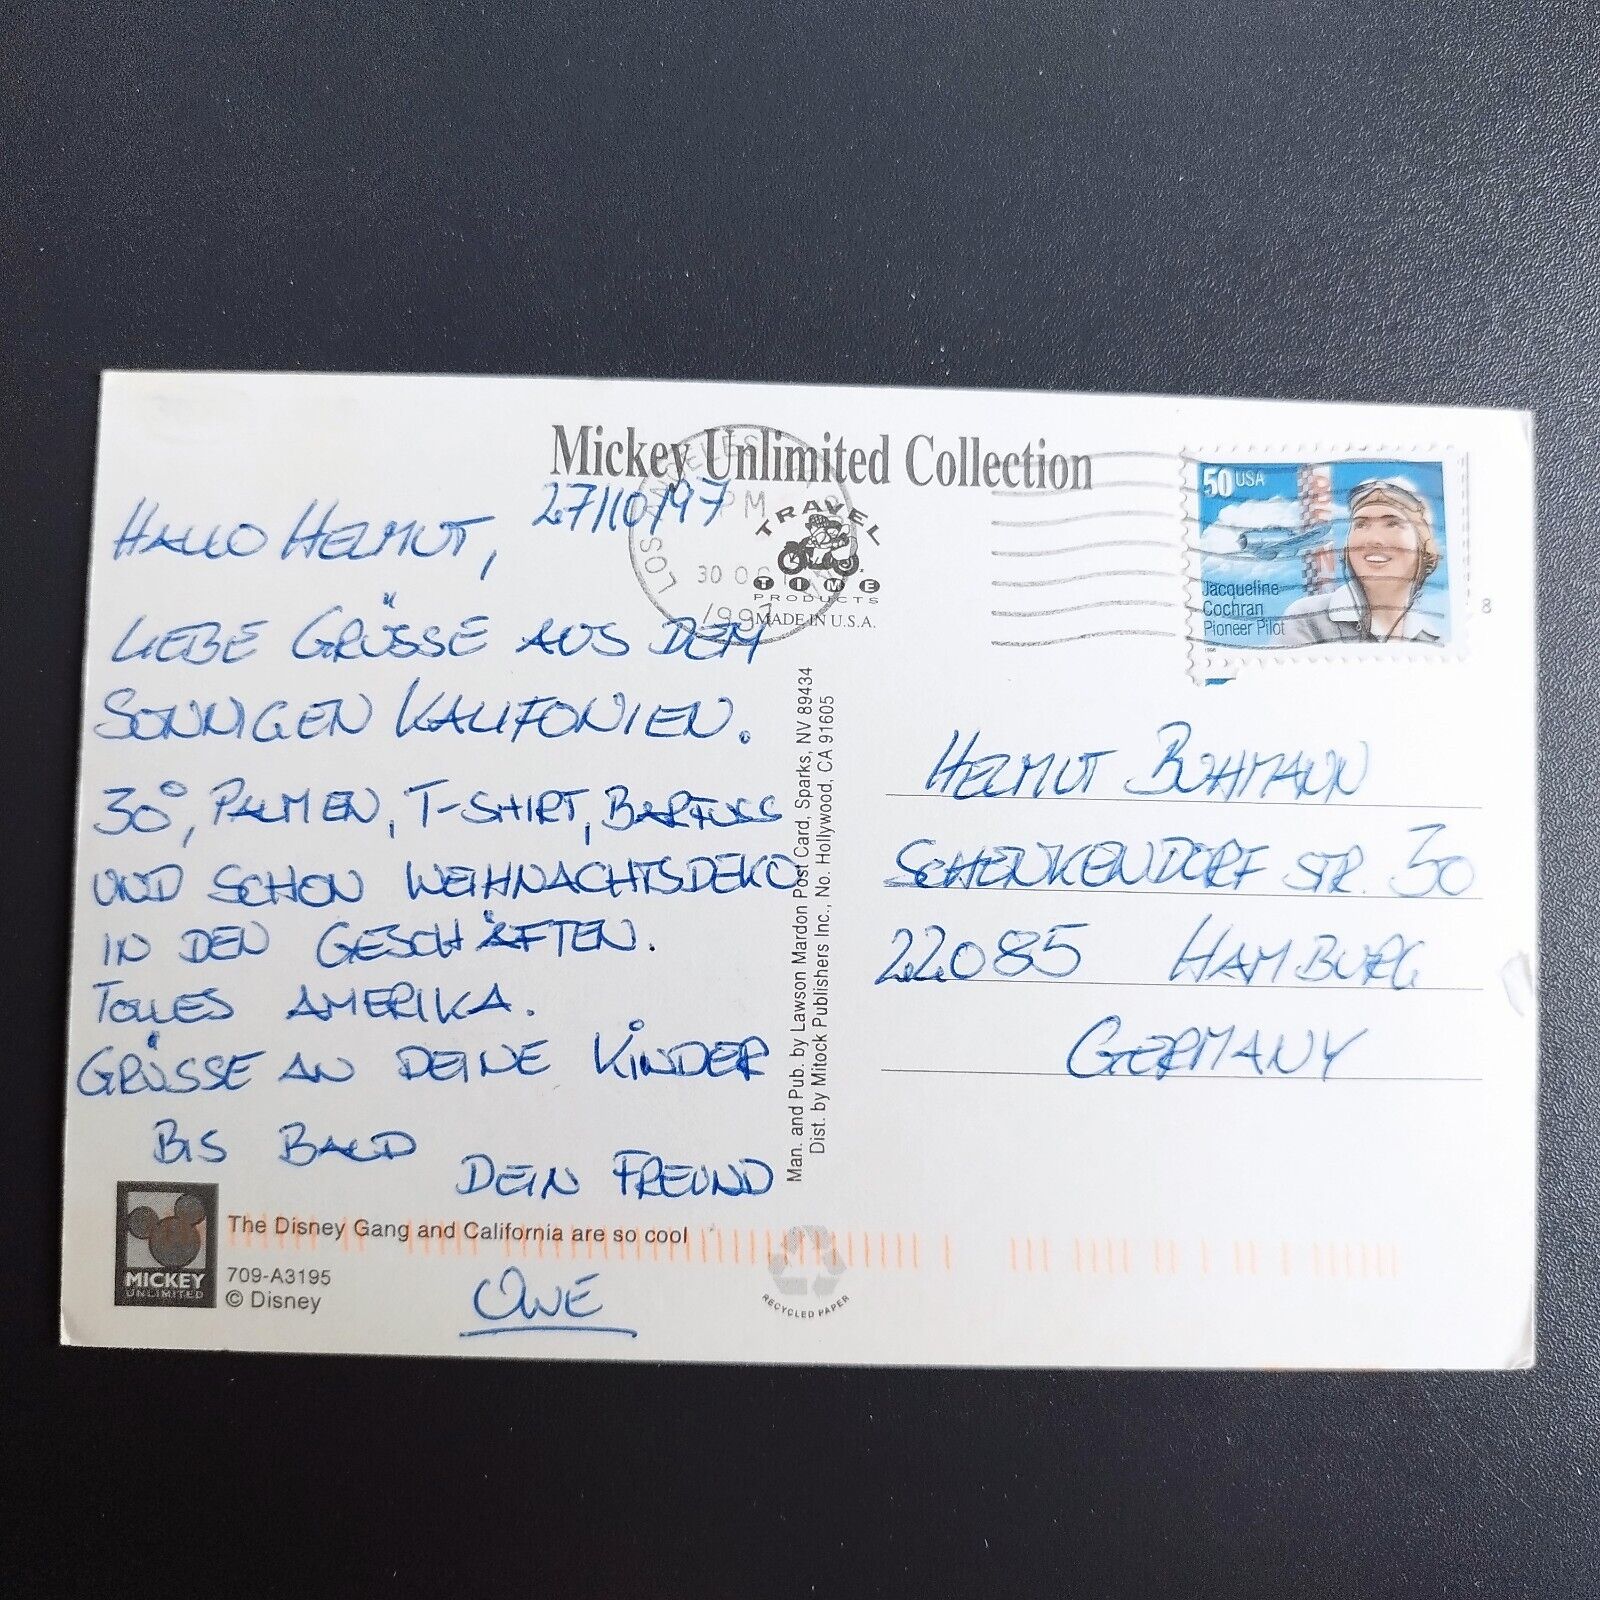 Mickey Unlimited Collection
HALLO HELMUT, 27/10/97
LIEBE GRÜSSE AUS DEM
SONNIGEN KALIFONIEN.
30°, PALMEN, T-SHIRT, BARFUSS
UND SCHON WEIHNACHTSDEKO
IN DEN GESCHÄFTEN.
TOLLES AMERIKA.
GRÜSSE AN DEINE KINDER
BIS BALD
DEIN FREUND
The Disney Gang and California are so cool
MICKEY
UNLIMITED
709-A3195
© Disney
LOS ANGELES
PM
30 OCT
1997
TRAVEL
TIME
PRODUCTS
MADE IN U.S.A.
Man. and Pub. by Lawson Mardon Post Card, Sparks, NV 89434
Dist. by Mitock Publishers Inc., No. Hollywood, CA 91605
RECYCLED PAPER
50 USA
Jacqueline
Cochran
Pioneer Pilot
1996
8
HELMUT BUHMANN
SCHENKENDORF STR. 30
22085 HAMBURG
GERMANY